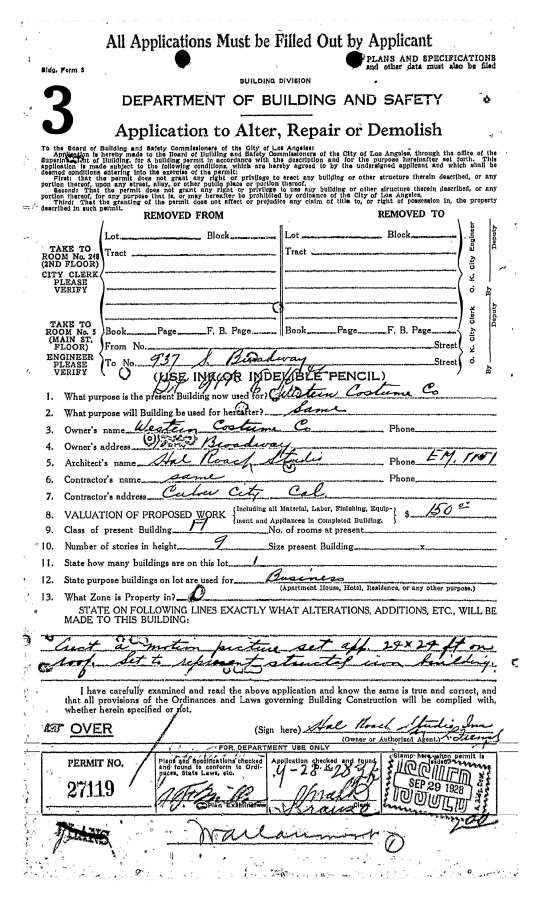 All Applications Must be Filled Out by Applicant
Bldg. Form 3
PLANS AND SPECIFICATIONS
and other data must also be filed
BUILDING DIVISION
3
DEPARTMENT OF BUILDING AND SAFETY
Application to Alter, Repair or Demolish
To the Board of Building and Safety Commissioners of the City of Los Angeles:
Application is hereby made to the Board of Building and Safety Commissioners of the City of Los Angeles, through the office of the
Superintendent of Building, for a building permit in accordance with the description and for the purpose hereinafter set forth. This
application is made subject to the following conditions, which are hereby agreed to by the undersigned applicant and which shall be
deemed conditions entering into the exercise of the permit:
First: That the permit does not grant any right or privilege to erect any building or other structure therein described, or any
portion thereof, upon any street, alley, or other public place or portion thereof.
Second: That the permit does not grant any right or privilege to use any building or other structure therein described, or any
portion thereof, for any purpose that is, or may hereafter be prohibited by ordinance of the City of Los Angeles.
Third: That the granting of the permit does not affect or prejudice any claim of title to, or right of possession in, the property
described in such permit.
REMOVED FROM REMOVED TO
Lot Block Lot Block
TAKE TO
ROOM No. 248
(2ND FLOOR)
CITY CLERK
PLEASE
VERIFY
Tract Tract
TAKE TO
ROOM No. 5
(MAIN ST.
FLOOR)
ENGINEER
PLEASE
VERIFY
Book Page F. B. Page Book Page F. B. Page
From No. Street
To No. 937 S. Broadway Street
O. K. City Clerk
By Deputy
O. K. City Engineer
By Deputy
(USE INK OR INDELIBLE PENCIL)
1. What purpose is the present Building now used for? Western Costume Co
2. What purpose will Building be used for hereafter? Same
3. Owner's name Western Costume Co Phone
4. Owner's address Broadway
5. Architect's name Hal Roach Studio Phone EM. 1151
6. Contractor's name same Phone
7. Contractor's address Culver City Cal.
8. VALUATION OF PROPOSED WORK {Including all Material, Labor, Finishing, Equipment and Appliances in Completed Building.} $ 150
9. Class of present Building No. of rooms at present
10. Number of stories in height 9 Size present Building x
11. State how many buildings are on this lot 1
12. State purpose buildings on lot are used for Business
(Apartment House, Hotel, Residence, or any other purpose.)
13. What Zone is Property in?
STATE ON FOLLOWING LINES EXACTLY WHAT ALTERATIONS, ADDITIONS, ETC., WILL BE
MADE TO THIS BUILDING:
Erect a motion picture set app. 24 x 24 ft on
roof. Set to represent structural iron building.
I have carefully examined and read the above application and know the same is true and correct, and
that all provisions of the Ordinances and Laws governing Building Construction will be complied with,
whether herein specified or not.
OVER (Sign here) Hal Roach Studios Inc
(Owner or Authorized Agent.)
FOR DEPARTMENT USE ONLY
PERMIT NO.
27119
Plans and Specifications checked
and found to conform to Ordinances, State Laws, etc.
Plan Examiner
Application checked and found
Clerk
Stamp here when permit is
issued
SEP 29 1928